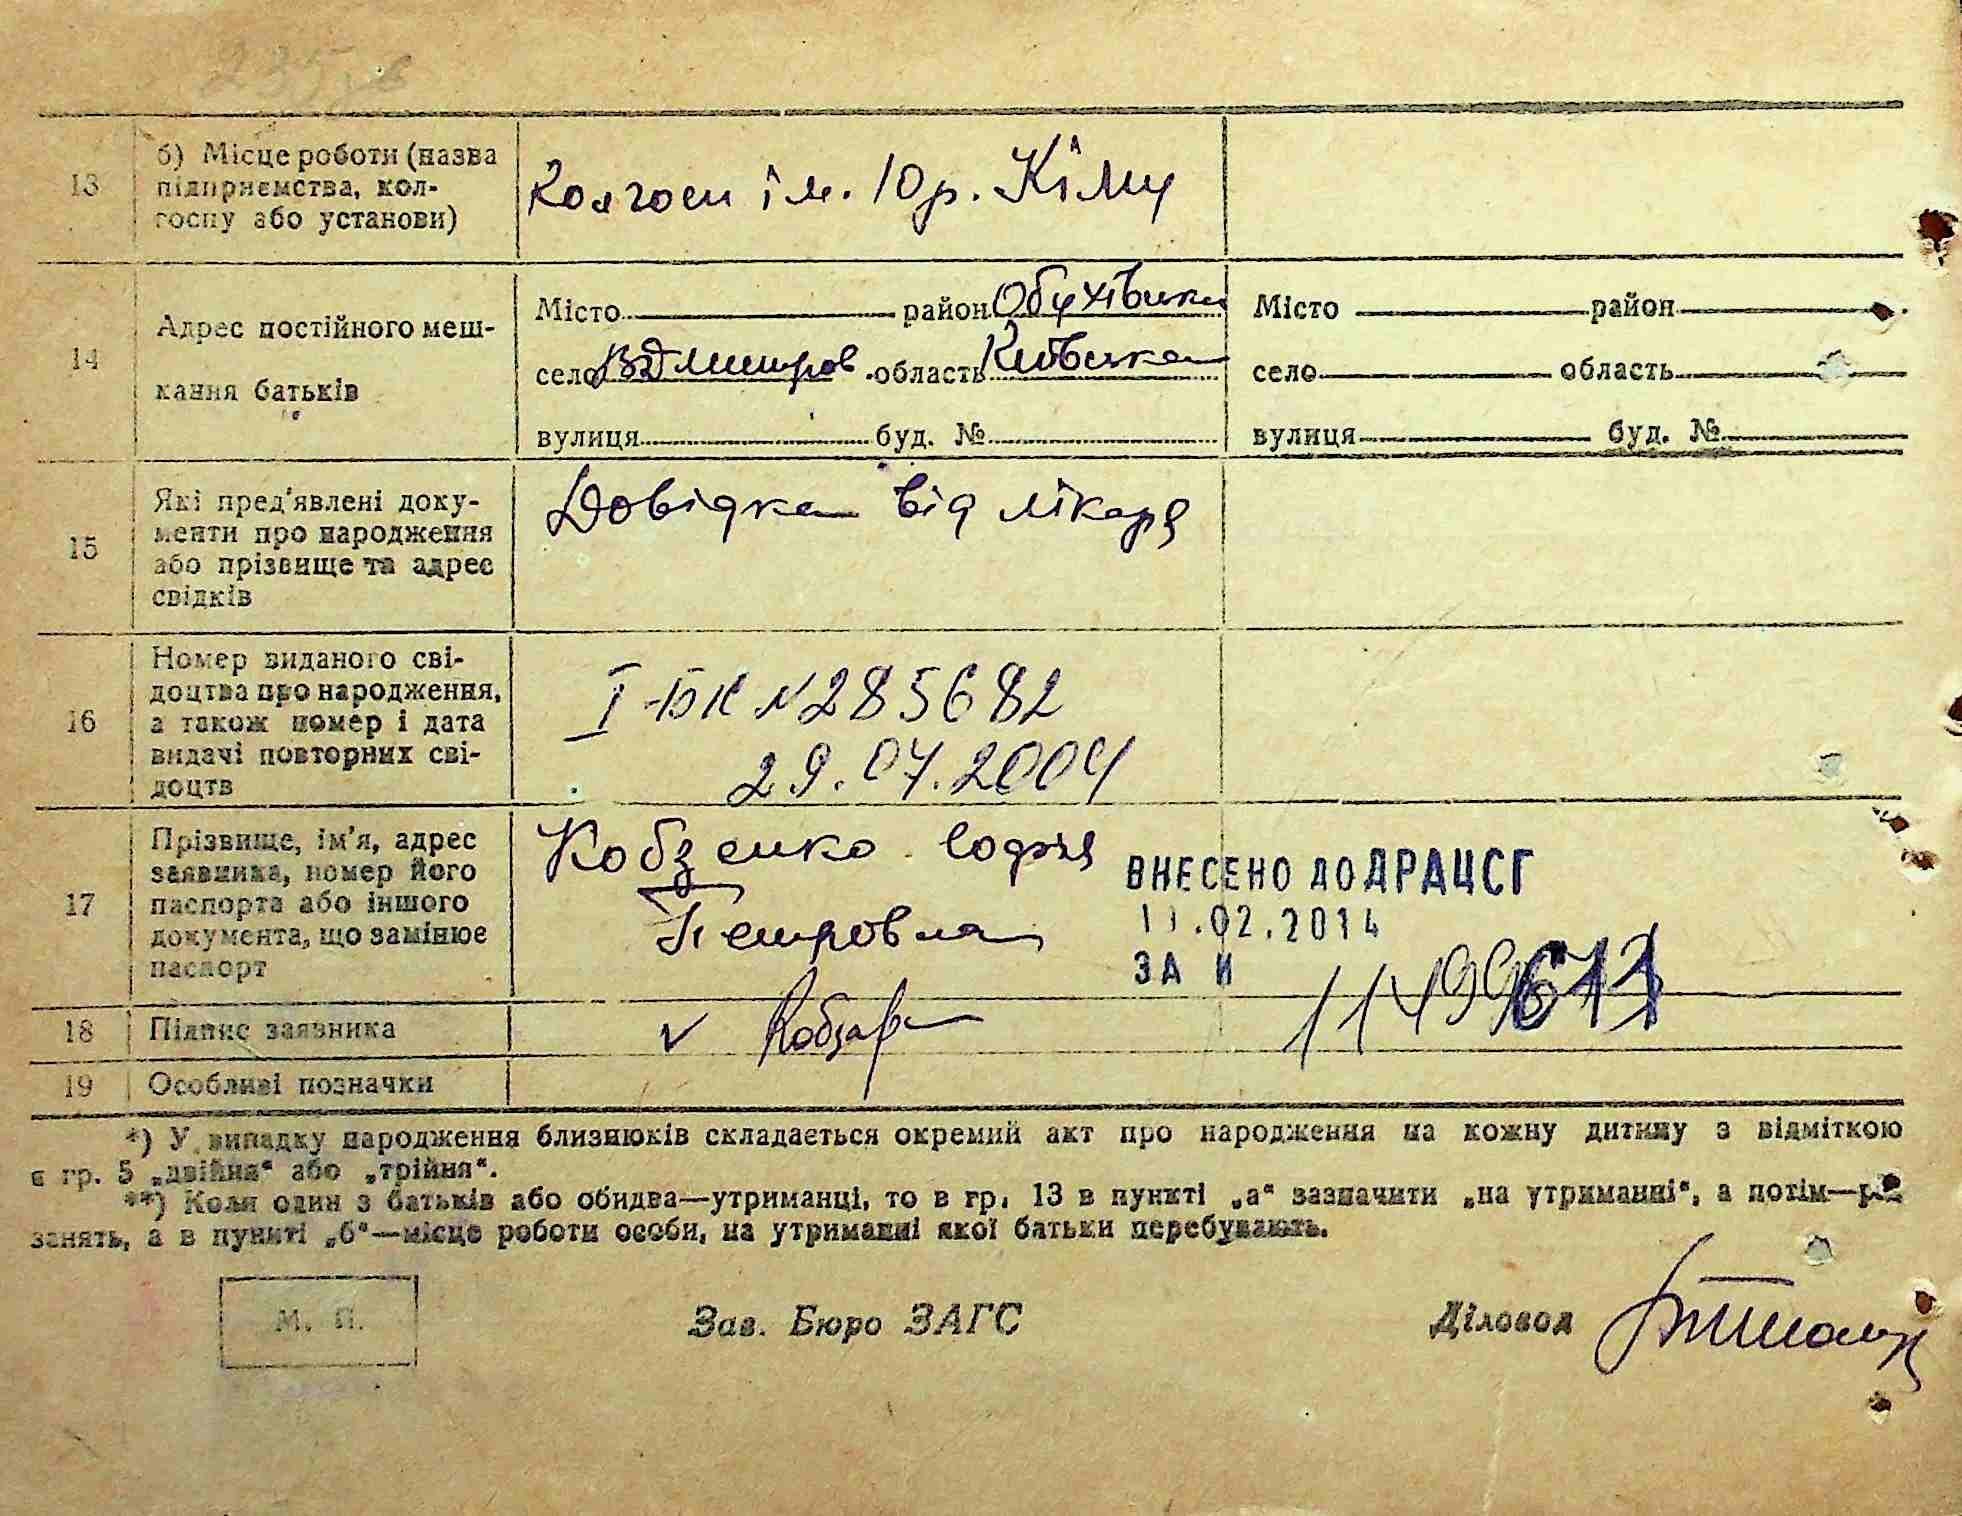 13 б) Місце роботи (назва
підприємства, кол-
госпу або установи)
Колгосп ім. 10 р. Кіму
14 Адрес постійного меш-
кання батьків
Місто район Обухівськ
село В Дмитров область Київська
вулиця буд. №
Місто район
село область
вулиця буд. №
15 Які пред'явлені доку-
менти про народження
або прізвище та адрес
свідків
Довідка від лікаря
16 Номер виданого сві-
доцтва про народження,
а також номер і дата
видачі повторних сві-
доцтв
I-БК №285682
29.07.2004
17 Прізвище, ім'я, адрес
заявника, номер його
паспорта або іншого
документа, що замінює
паспорт
Кобзенко Софія
Петровна
ВНЕСЕНО ДО ДРАЦСГ
.02.2014
ЗА И
18 Підпис заявника
19 Особливі позначки
*) У випадку народження близнюків складається окремий акт про народження на кожну дитину з відміткою
в гр. 5 „двійня“ або „трійня“.
**) Коли один з батьків або обидва—утриманці, то в гр. 13 в пункті „а“ зазначити „на утриманні“, а потім—рід
занять, а в пункті „б“—місце роботи особи, на утриманні якої батьки перебувають.
М. П.
Зав. Бюро ЗАГС
Діловод